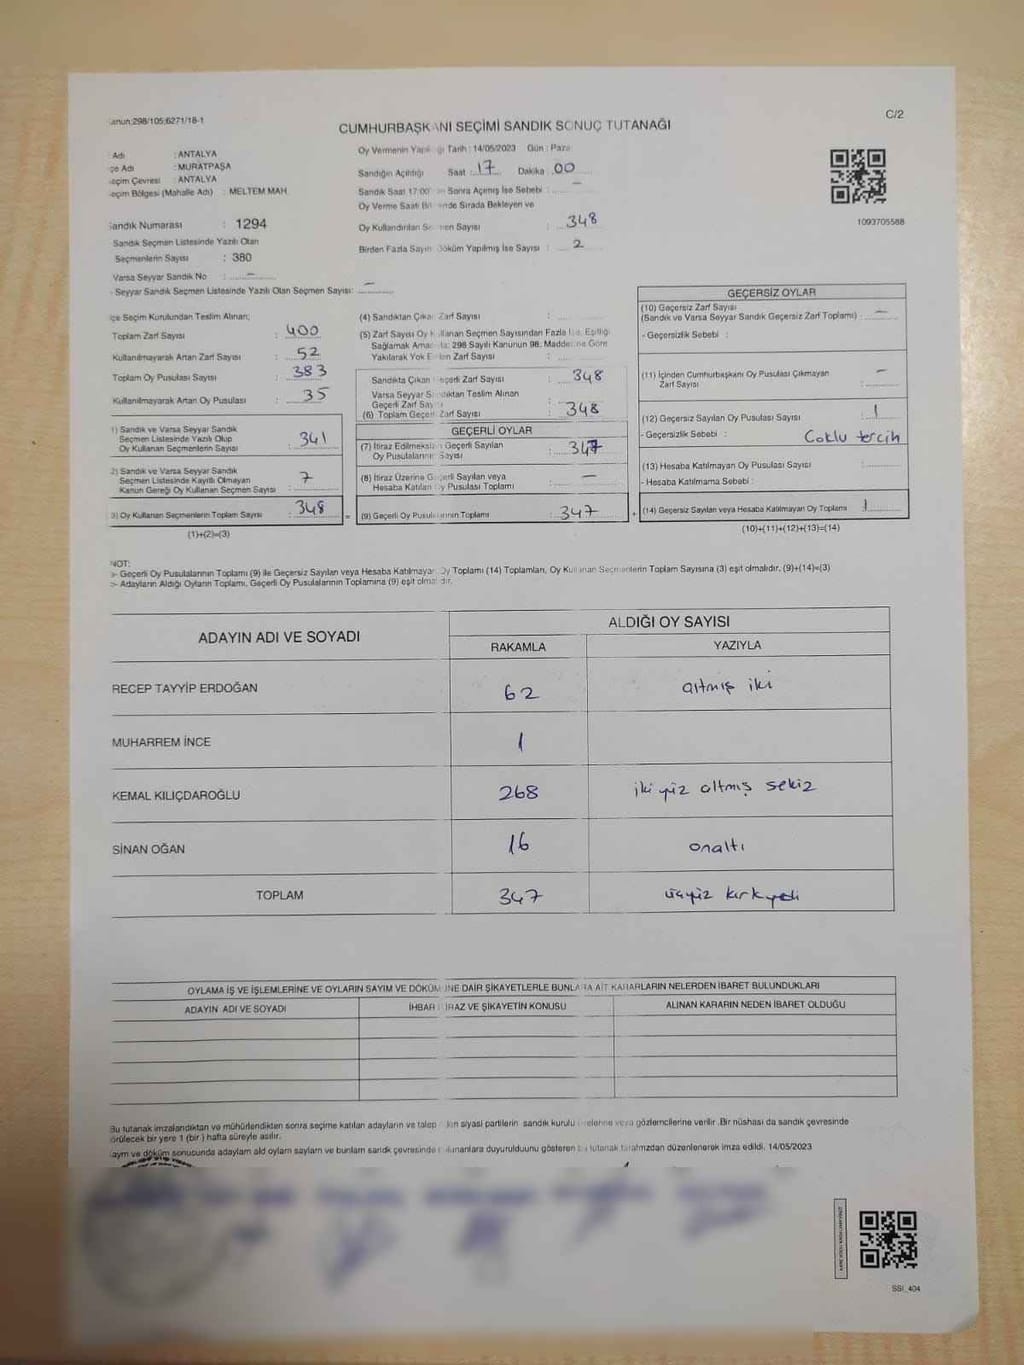 anun:298/105;6271/18-1
C/2
CUMHURBAŞKANI SEÇİMİ SANDIK SONUÇ TUTANAĞI
Adı : ANTALYA
çe Adı : MURATPAŞA
eçim Çevresi : ANTALYA
eçim Bölgesi (Mahalle Adı) : MELTEM MAH.
Sandık Numarası : 1294
Sandık Seçmen Listesinde Yazılı Olan
Seçmenlerin Sayısı : 380
Varsa Seyyar Sandık No : –
- Seyyar Sandık Seçmen Listesinde Yazılı Olan Seçmen Sayısı: –
Oy Vermenin Yapıl gı Tarih : 14/05/2023 Gün : Paza
Sandığın Açıldığı Saat : 17 Dakika : 00
Sandık Saat 17:00 n Sonra Açılmış İse Sebebi : –
Oy Verme Saati Bi nde Sırada Bekleyen ve
Oy Kullandırılan Se men Sayısı : 348
Birden Fazla Sayım Döküm Yapılmış İse Sayısı : 2
1093705588
çe Seçim Kurulundan Teslim Alınan;
Toplam Zarf Sayısı : 400
Kullanılmayarak Artan Zarf Sayısı : 52
Toplam Oy Pusulası Sayısı : 383
Kullanılmayarak Artan Oy Pusulası : 35
1) Sandık ve Varsa Seyyar Sandık
Seçmen Listesinde Yazılı Olup
Oy Kullanan Seçmenlerin Sayısı : 341
2) Sandık ve Varsa Seyyar Sandık
Seçmen Listesinde Kayıtlı Olmayan
Kanun Gereği Oy Kullanan Seçmen Sayısı : 7
3) Oy Kullanan Seçmenlerin Toplam Sayısı : 348 =
(1)+(2)=(3)
(4) Sandıktan Çıka Zarf Sayısı :
(5) Zarf Sayısı Oy K llanan Seçmen Sayısından Fazla İse, Eşitliği
Sağlamak Ama la; 298 Sayılı Kanunun 98. Maddesine Göre
Yakılarak Yok E en Zarf Sayısı :
Sandıkta Çıkan eçerli Zarf Sayısı : 348
Varsa Seyyar S dıktan Teslim Alınan
Geçerli Zarf Say
(6) Toplam Geçer Zarf Sayısı : 348
GEÇERLİ OYLAR
(7) İtiraz Edilmeksi Geçerli Sayılan
Oy Pusulalarını Sayısı : 347
(8) İtiraz Üzerine G erli Sayılan veya
Hesaba Katılan y Pusulası Toplamı : –
(9) Geçerli Oy Pusul rının Toplamı : 347
GEÇERSİZ OYLAR
(10) Geçersiz Zarf Sayısı
(Sandık ve Varsa Seyyar Sandık Geçersiz Zarf Toplamı) : –
- Geçersizlik Sebebi :
(11) İçinden Cumhurbaşkanı Oy Pusulası Çıkmayan
Zarf Sayısı : –
(12) Geçersiz Sayılan Oy Pusulası Sayısı : 1
- Geçersizlik Sebebi : Çoklu tercih
(13) Hesaba Katılmayan Oy Pusulası Sayısı :
- Hesaba Katılmama Sebebi :
+ (14) Geçersiz Sayılan veya Hesaba Katılmayan Oy Toplamı : 1
(10)+(11)+(12)+(13)=(14)
NOT:
>- Geçerli Oy Pusulalarının Toplamı (9) ile Geçersiz Sayılan veya Hesaba Katılmayan Oy Toplamı (14) Toplamları, Oy Kullanan Seçmenlerin Toplam Sayısına (3) eşit olmalıdır. (9)+(14)=(3)
>- Adayların Aldığı Oyların Toplamı, Geçerli Oy Pusulalarının Toplamına (9) eşit olmalıdır.
ADAYIN ADI VE SOYADI
ALDIĞI OY SAYISI
RAKAMLA YAZIYLA
RECEP TAYYİP ERDOĞAN 62 altmış iki
MUHARREM İNCE 1
KEMAL KILIÇDAROĞLU 268 iki yüz altmış sekiz
SİNAN OĞAN 16 onaltı
TOPLAM 347 üçyüz kırkyedi
OYLAMA İŞ VE İŞLEMLERİNE VE OYLARIN SAYIM VE DÖKÜM NE DAİR ŞİKAYETLERLE BUNLARA AİT KARARLARIN NELERDEN İBARET BULUNDUKLARI
ADAYIN ADI VE SOYADI İHBAR İ İRAZ VE ŞİKAYETİN KONUSU ALINAN KARARIN NEDEN İBARET OLDUĞU
Bu tutanak imzalandıktan ve mühürlendikten sonra seçime katılan adayların ve talep den siyasi partilerin sandık kurulu üyelerine veya gözlemcilerine verilir .Bir nüshası da sandık çevresinde
örülecek bir yere 1 (bir ) hafta süreyle asılır.
ayım ve döküm sonucunda adayların aldı oyların sayıları ve bunların sandık çevresinde ulunanlara duyurulduunu gösteren bu tutanak tarafımızdan düzenlenerek imza edildi. 14/05/2023
SSI_404